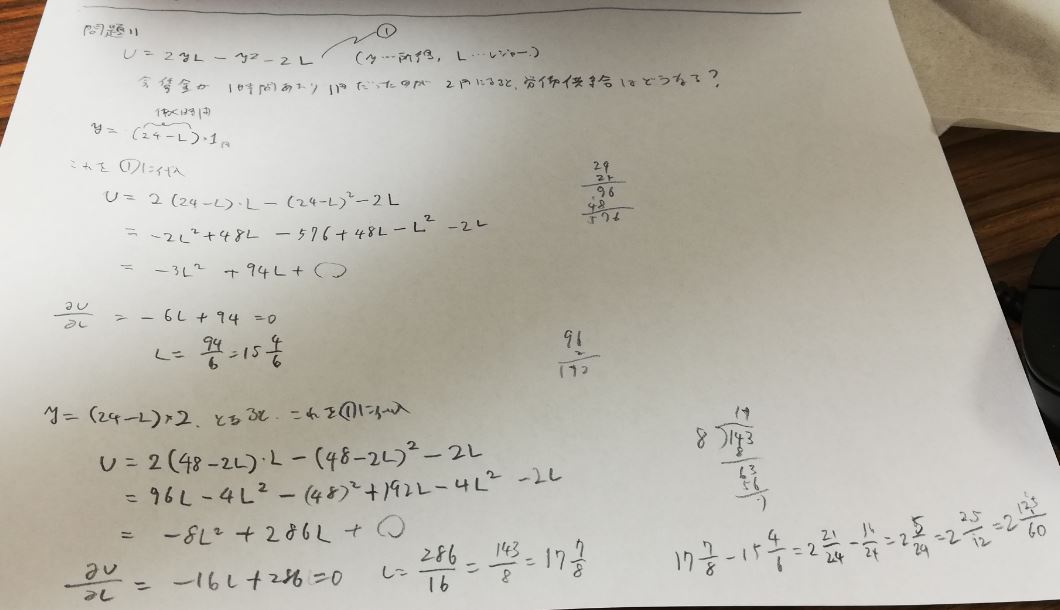 問題11
U = 2yL - y² - 2L ① (y…所得, L…レジャー)
今賃金が 1時間あたり 1円だったのが 2円になると、労働供給はどうなる?
働く時間
y = (24-L)・1円
これを①に代入
U = 2(24-L)・L - (24-L)² - 2L
= -2L² + 48L - 576 + 48L - L² - 2L
= -3L² + 94L + ○
∂U/∂L = -6L + 94 = 0
L = 94/6 = 15 4/6
24
24
96
48
576
96
2
192
y = (24-L)×2、とすると、これを①に代入
U = 2(48-2L)・L - (48-2L)² - 2L
= 96L - 4L² - (48)² + 192L - 4L² - 2L
= -8L² + 286L + ○
∂U/∂L = -16L + 286 = 0 L = 286/16 = 143/8 = 17 7/8
17
8)143
8
63
56
7
17 7/8 - 15 4/6 = 2 21/24 - 16/24 = 2 5/24 = 2 25/12 = 2 125/60